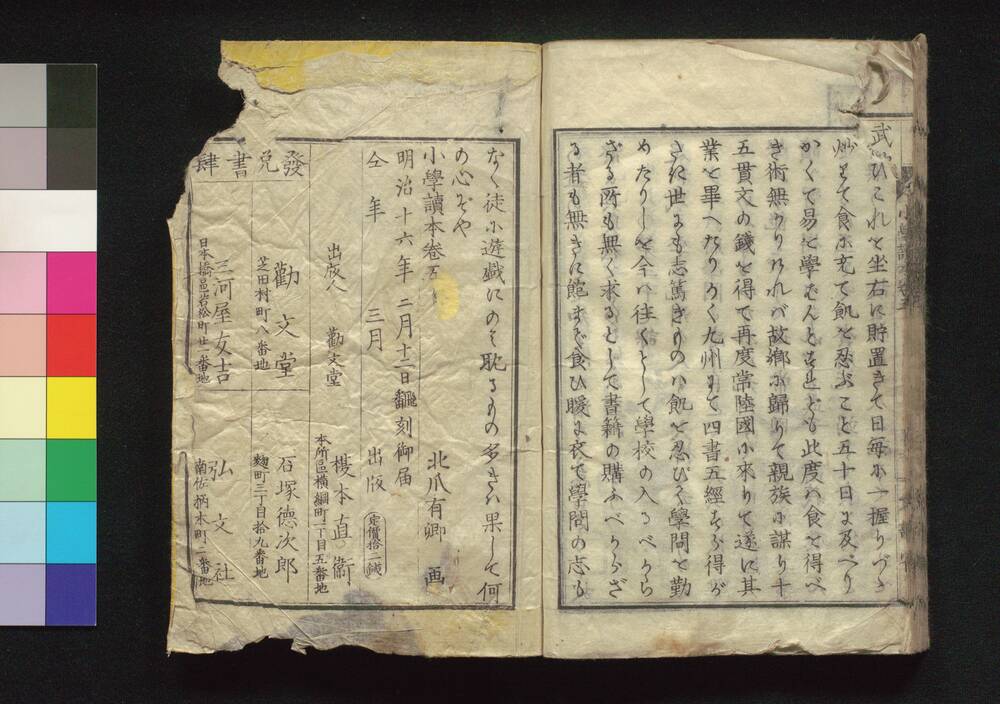 ひこれを坐右に貯置きて日毎に一握りづゝ
て食に充て飢を忍ぶこと五十日に及べり
かくて易を學ばんとすれども此度ハ食を得べ
き術無かりけれバ故郷に歸りて親族に謀り十
五貫文の錢を得て再度常陸國に來りて遂に其
業を畢へたりかく九州にて四書五經すら得が
きに世にも志篤きものハ飢を忍びて學問を勤
めたりしを今ハ往くとして學校の入るべから
ざる所も無く求るとして書籍の購ふべからざ
る者も無きに飽まで食ひ暖に衣て學問の志も
なく徒に遊戯にのミ耽るもの多きハ果して何
の心ぞや
小學讀本卷五
北爪有卿 画
明治十六年二月十二日翻刻御届
仝年 三月 出版
定價拾二錢
出版人 勸文堂 榎本直衛
本所區横網町一丁目五番地
發兌書肆
勸文堂
芝田村町八番地
石塚德次郎
麹町三丁目拾九番地
三河屋女吉
日本橋區岩松町廿一番地
弘文社
南佐柄木町二番地